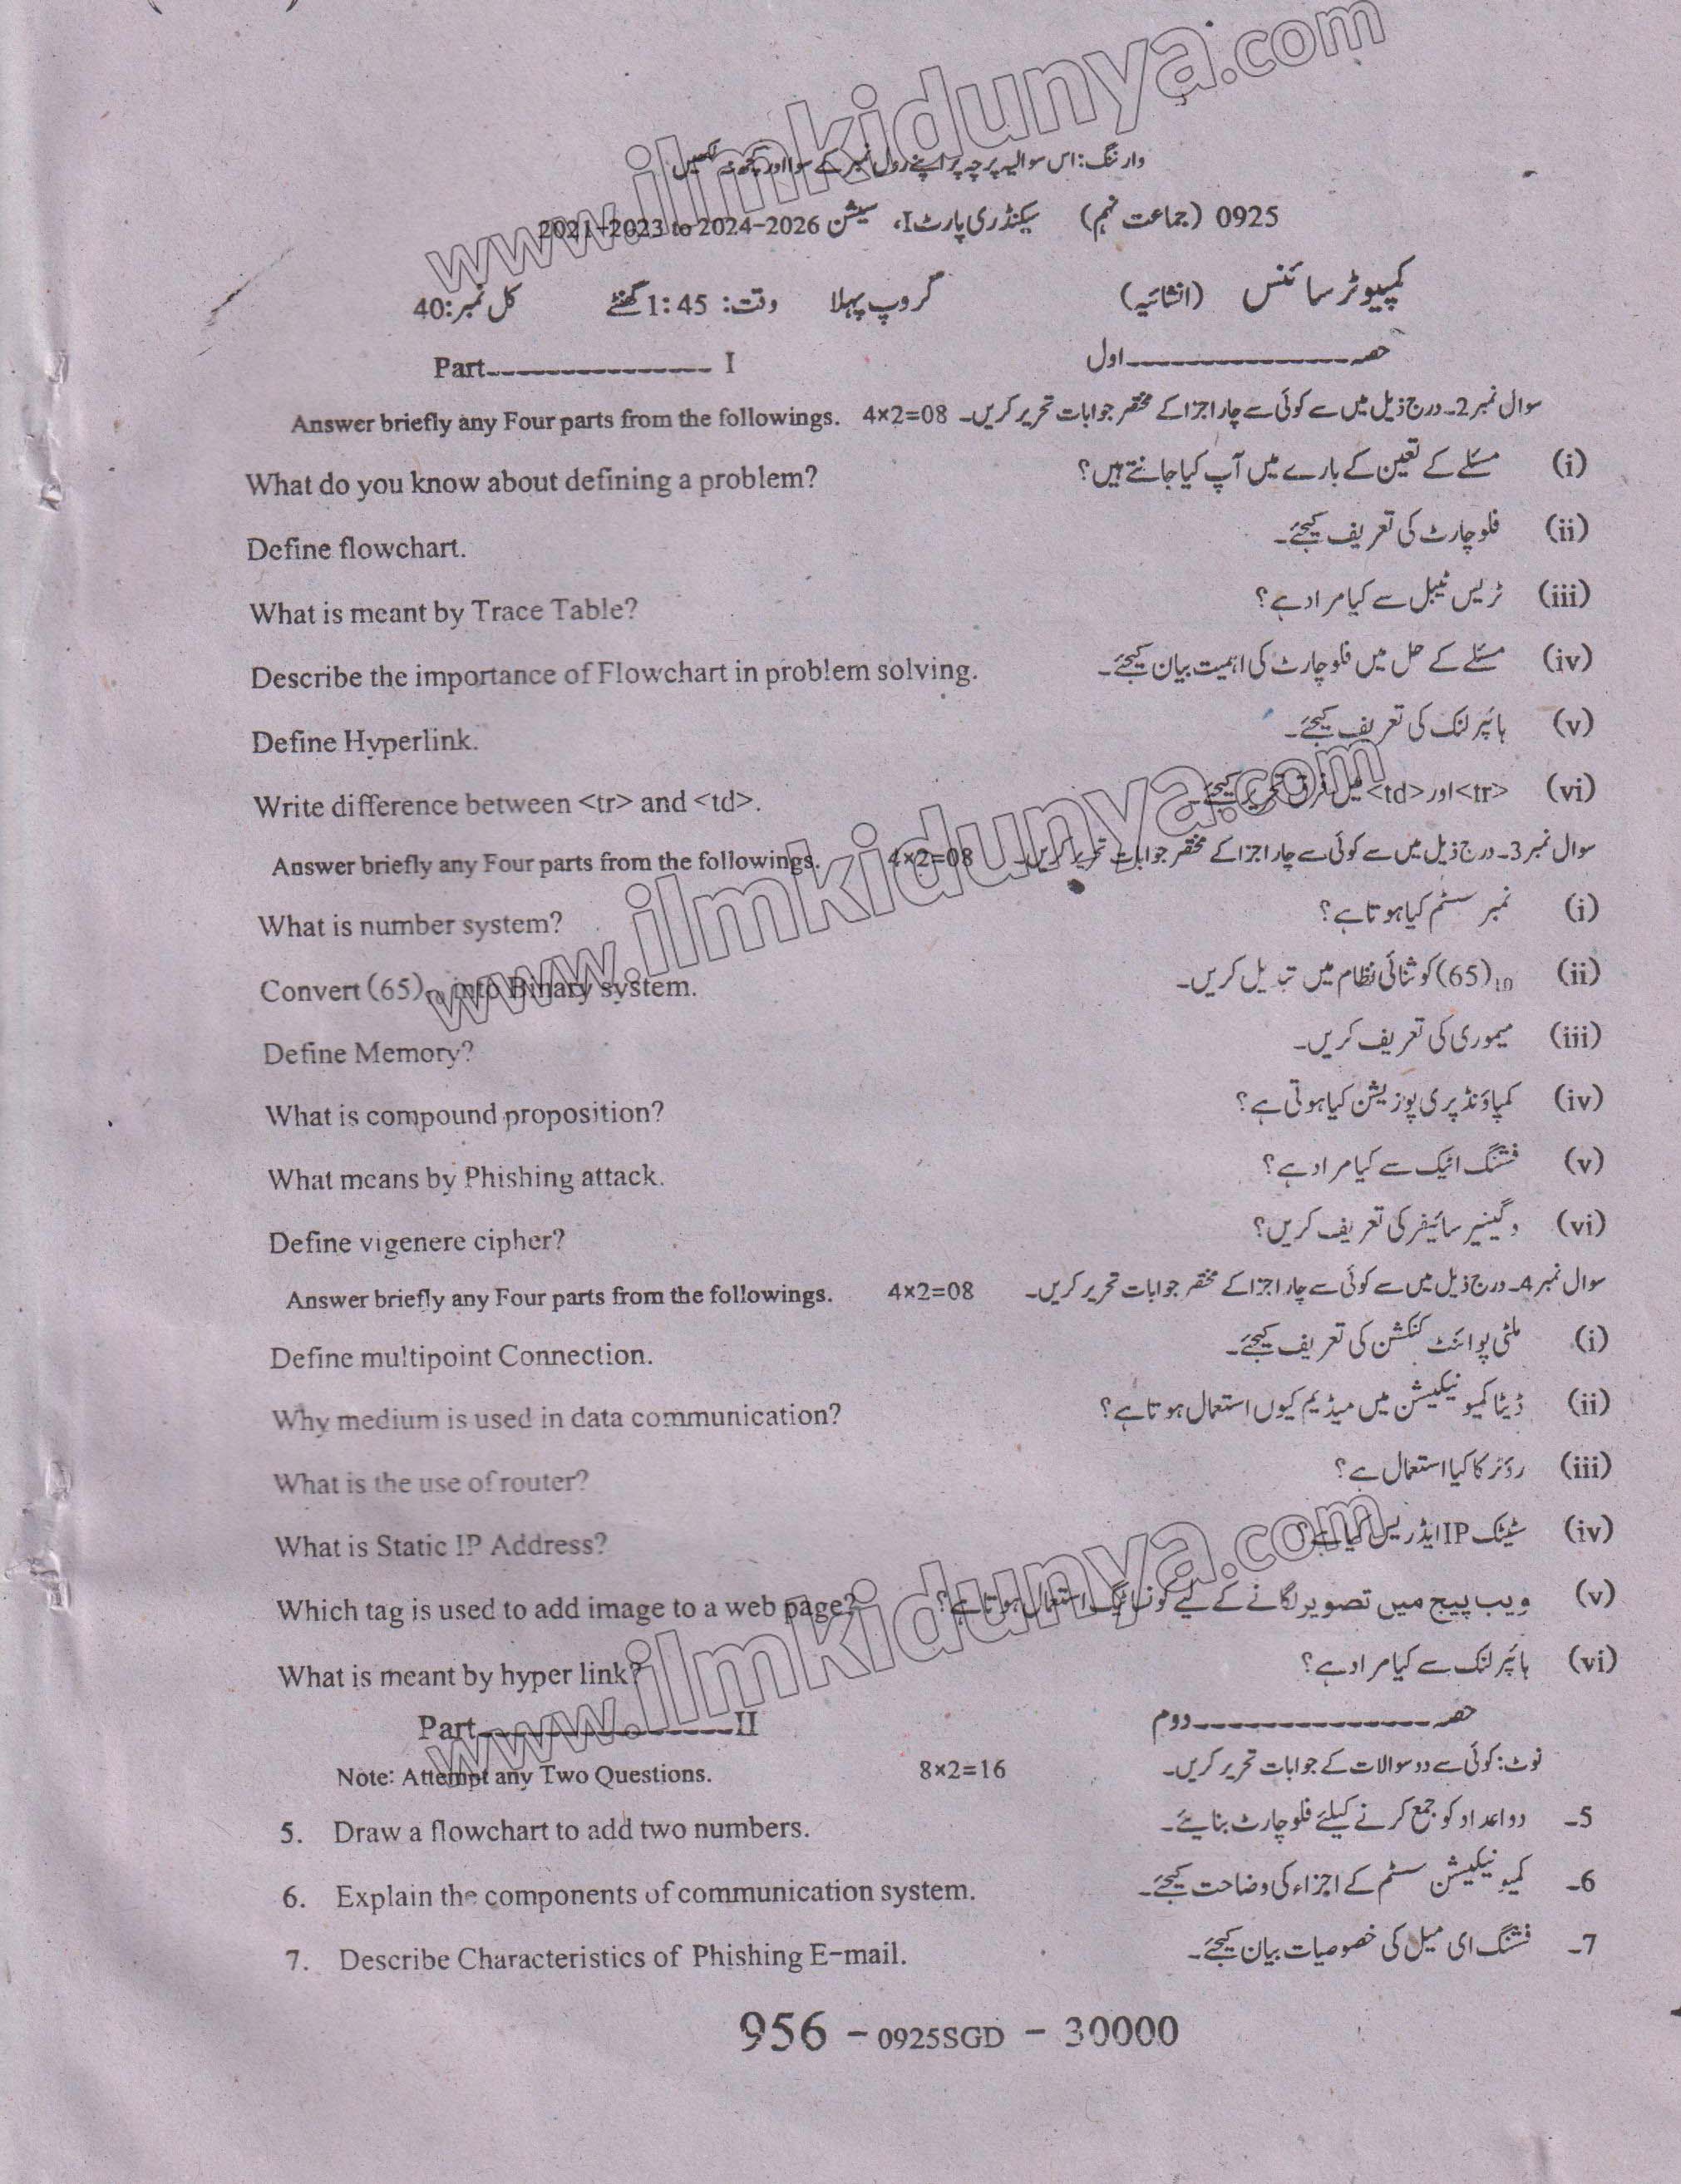 www.ilmkidunya.com
وارننگ: اس سوالیہ پرچہ پر اپنے رول نمبر کے سوا اور کچھ نہ لکھیں
0925 (جماعت نہم) سیکنڈری پارٹ I، سیشن 2021-2023 to 2024-2026
کمپیوٹر سائنس (انشائیہ) گروپ پہلا وقت: 1:45 گھنٹے کل نمبر: 40
Part---------------- I حصہ ---------------- اول
Answer briefly any Four parts from the followings. 4×2=08 سوال نمبر 2۔ درج ذیل میں سے کوئی سے چار اجزا کے مختصر جوابات تحریر کریں۔
What do you know about defining a problem? مسئلے کے تعین کے بارے میں آپ کیا جانتے ہیں؟ (i)
Define flowchart. فلو چارٹ کی تعریف کیجئے۔ (ii)
What is meant by Trace Table? ٹریس ٹیبل سے کیا مراد ہے؟ (iii)
Describe the importance of Flowchart in problem solving. مسئلے کے حل میں فلو چارٹ کی اہمیت بیان کیجئے۔ (iv)
Define Hyperlink. ہائپر لنک کی تعریف کیجئے۔ (v)
Write difference between <tr> and <td>. <tr> اور <td> میں فرق تحریر کیجئے۔ (vi)
www.ilmkidunya.com
Answer briefly any Four parts from the followings. 4×2=08 سوال نمبر 3۔ درج ذیل میں سے کوئی سے چار اجزا کے مختصر جوابات تحریر کریں۔
What is number system? نمبر سسٹم کیا ہوتا ہے؟ (i)
Convert (65)10 into Binary system. (65)10 کو ثنائی نظام میں تبدیل کریں۔ (ii)
Define Memory? میموری کی تعریف کریں۔ (iii)
What is compound proposition? کمپاؤنڈ پری پوزیشن کیا ہوتی ہے؟ (iv)
What means by Phishing attack. فشنگ اٹیک سے کیا مراد ہے؟ (v)
Define vigenere cipher? وگینیر سائیفر کی تعریف کریں؟ (vi)
Answer briefly any Four parts from the followings. 4×2=08 سوال نمبر 4۔ درج ذیل میں سے کوئی سے چار اجزا کے مختصر جوابات تحریر کریں۔
Define multipoint Connection. ملٹی پوائنٹ کنکشن کی تعریف کیجئے۔ (i)
Why medium is used in data communication? ڈیٹا کمیونیکیشن میں میڈیم کیوں استعمال ہوتا ہے؟ (ii)
What is the use of router? روٹر کا کیا استعمال ہے؟ (iii)
What is Static IP Address? سٹیٹک IP ایڈریس کیا ہے؟ (iv)
Which tag is used to add image to a web page? ویب پیج میں تصویر لگانے کے لیے کونسا ٹیگ استعمال ہوتا ہے؟ (v)
What is meant by hyper link? ہائپر لنک سے کیا مراد ہے؟ (vi)
www.ilmkidunya.com
Part----------------II حصہ ---------------- دوم
Note: Attempt any Two Questions. 8×2=16 نوٹ: کوئی سے دو سوالات کے جوابات تحریر کریں۔
5. Draw a flowchart to add two numbers. دو اعداد کو جمع کرنے کیلئے فلو چارٹ بنائیے۔ 5۔
6. Explain the components of communication system. کمیونیکیشن سسٹم کے اجزاء کی وضاحت کیجئے۔ 6۔
7. Describe Characteristics of Phishing E-mail. فشنگ ای میل کی خصوصیات بیان کیجئے۔ 7۔
956 - 0925SGD - 30000